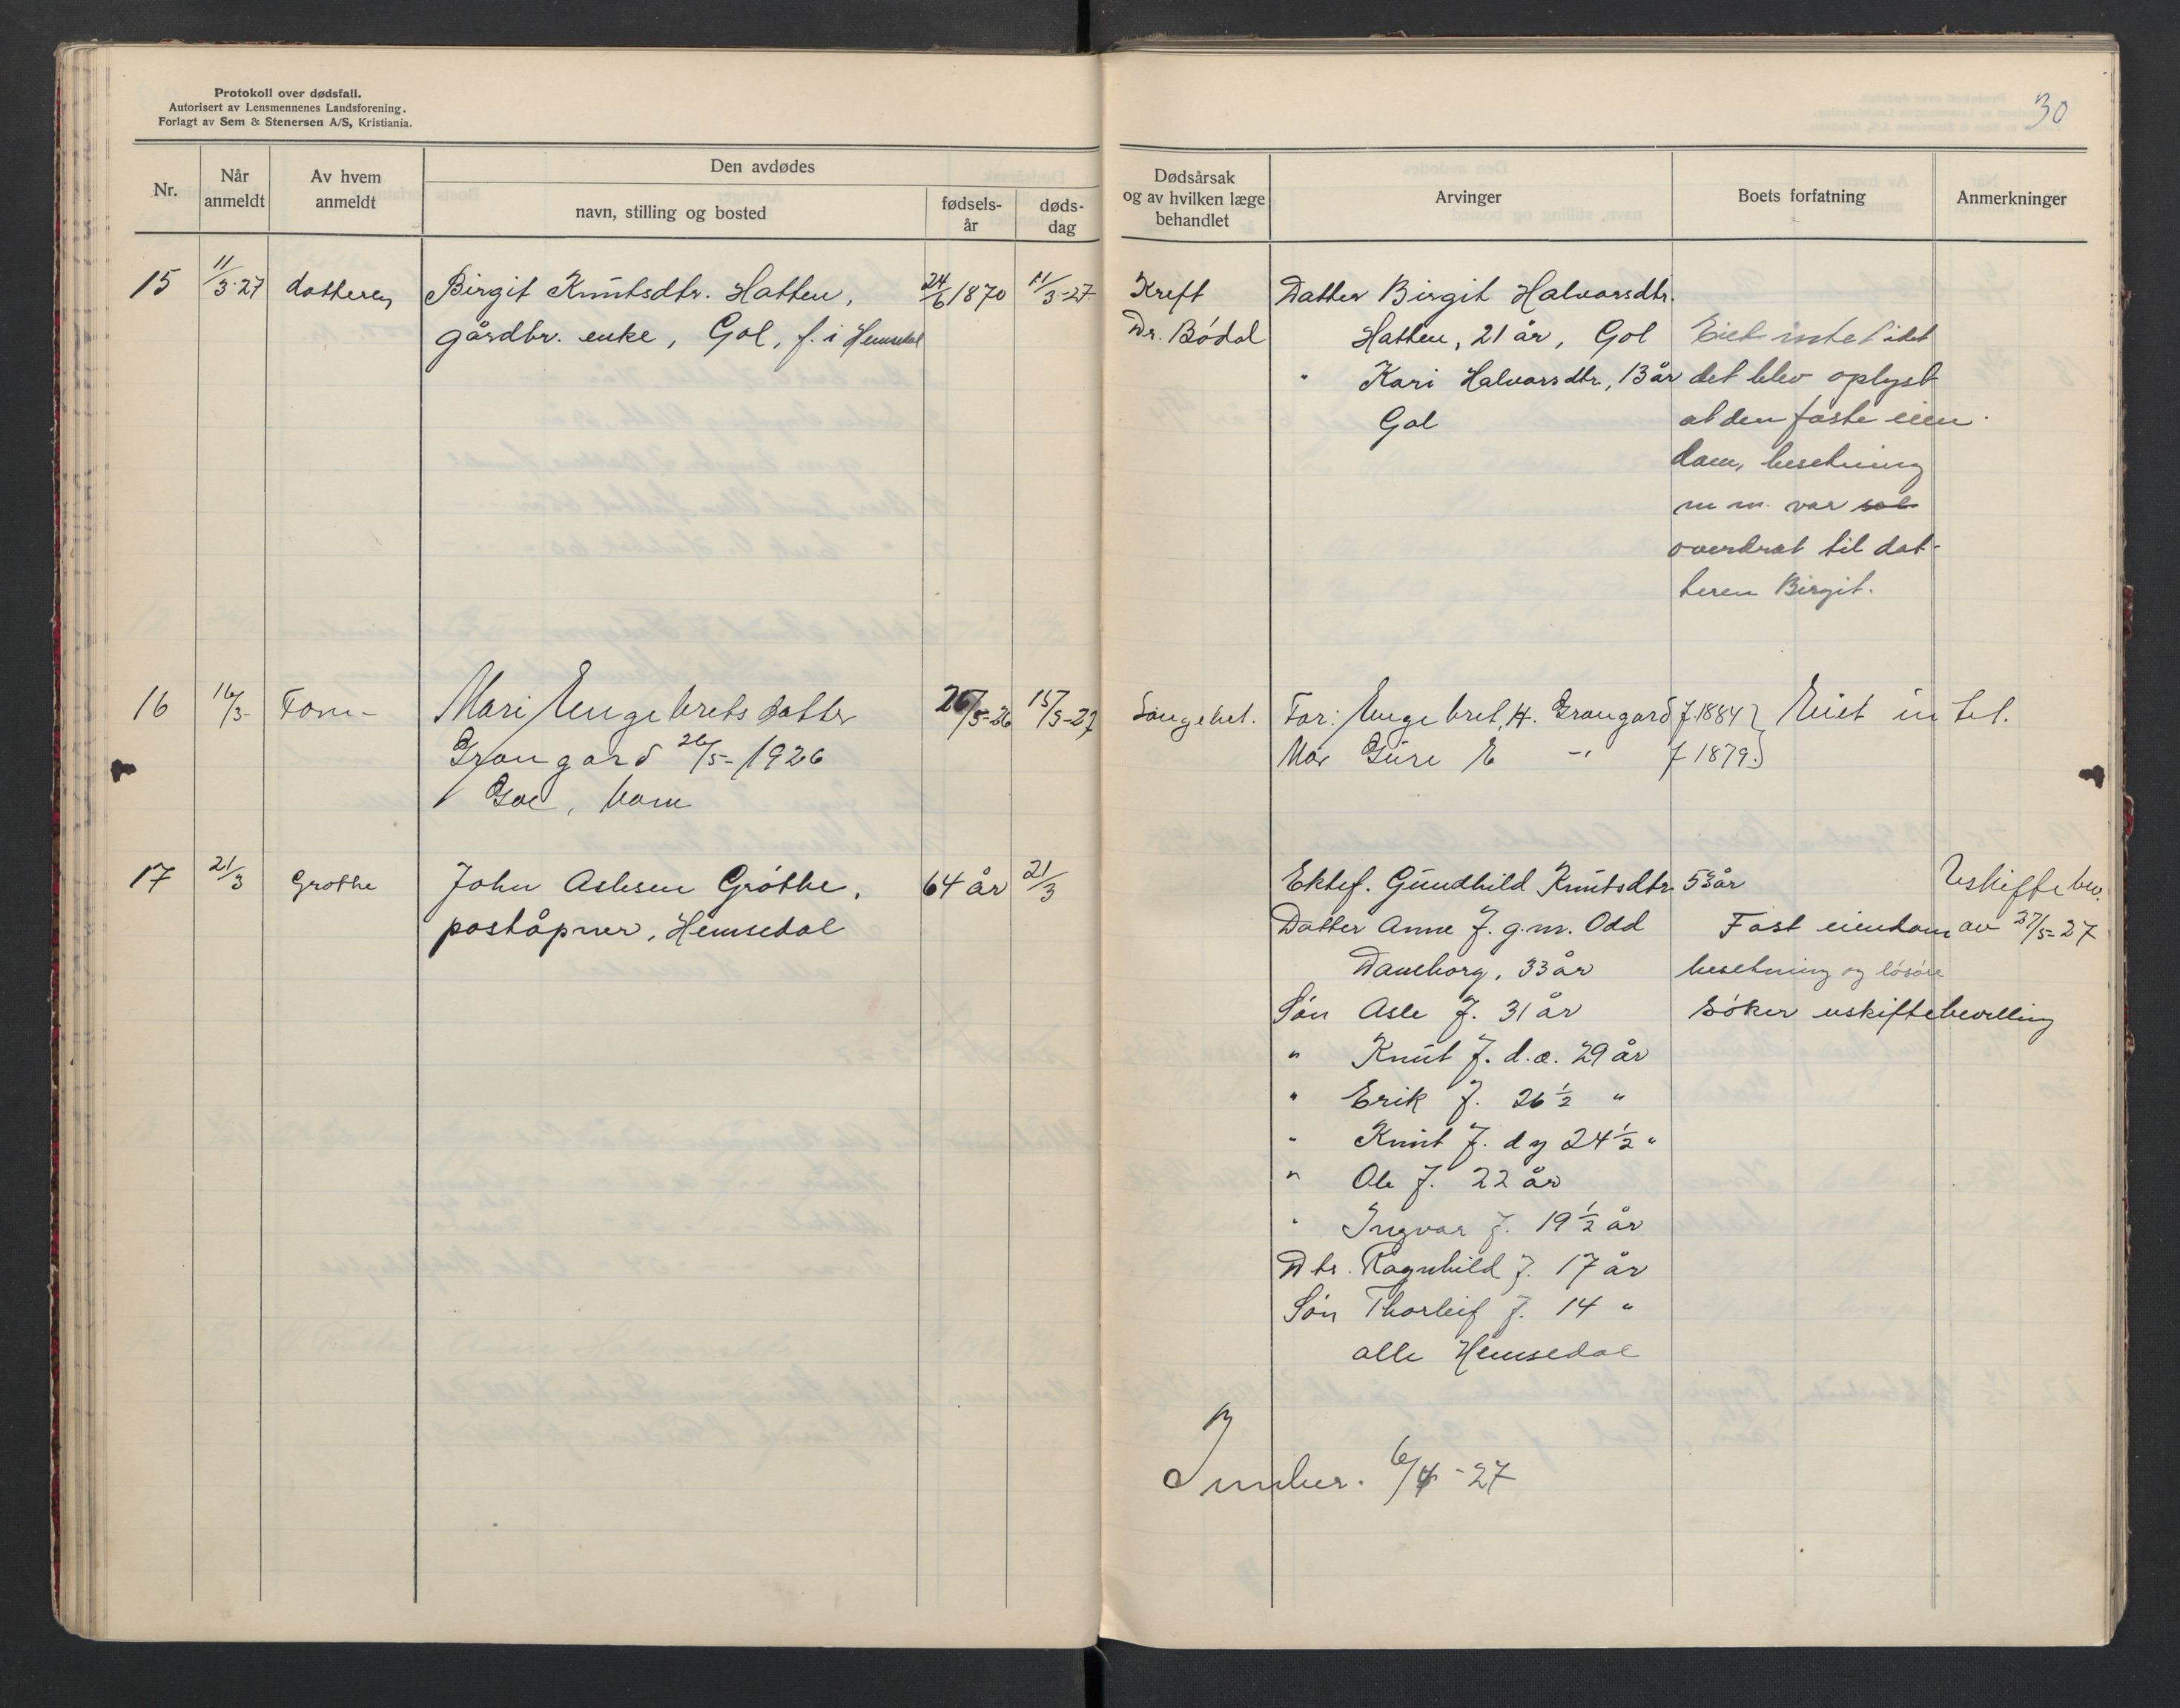 Protokoll over dødsfall.
Autorisert av Lensmennenes Landsforening.
Forlagt av Sem & Stenersen A/S, Kristiania.
30
Nr.
Når anmeldt
Av hvem anmeldt
Den avdødes
navn, stilling og bosted
fødsels-år
døds-dag
Dødsårsak og av hvilken læge behandlet
Arvinger
Boets forfatning
Anmerkninger
15 11/3-27 datteren Birgit Knutsdtr. Hatten, 24/6 1870 11/3-27 Kreft Datter Birgit Halvorsdtr.
gårdbr. enke, Gol, f. i Hemsedal Dr. Bödal Hatten, 21 år, Gol Eiet intet idet
" Kari Halvorsdtr, 13 år det blev oplyst
Gol at den faste eien-
dom, besetning
m m. var sol
overdrat til dat-
teren Birgit.
16 16/3- Faren Mari Engebretsdatter 26/5-26 15/3-27 Lungebet. Far: Engebret H. Grangard f 1884 } Eiet intet.
Grangard 26/5-1926 Mor Guri E -" f 1879 }
Gol, barn
17 21/3 Grøthe John Aslesen Gróthe, 64 år 21/3 Ektef. Gundhild Knutsdtr. 53 år Uskiftebev.
poståpner, Hemsedal Datter Anne J. g.m. Odd Fast eiendom av 27/5-27
Daneborg, 33 år besetning og lösöre
Sön Asle J. 31 år Söker uskiftebevilling
" Knut J. d.e. 29 år
" Erik J. 26 ½ "
" Knut J. d y 24 ½ "
" Ole J. 22 år
" Ingvar J. 19 ½ år
Dtr. Ragnhild J. 17 år
Sön Thorleif J. 14 "
alle Hemsedal
Innber. 6/4-27